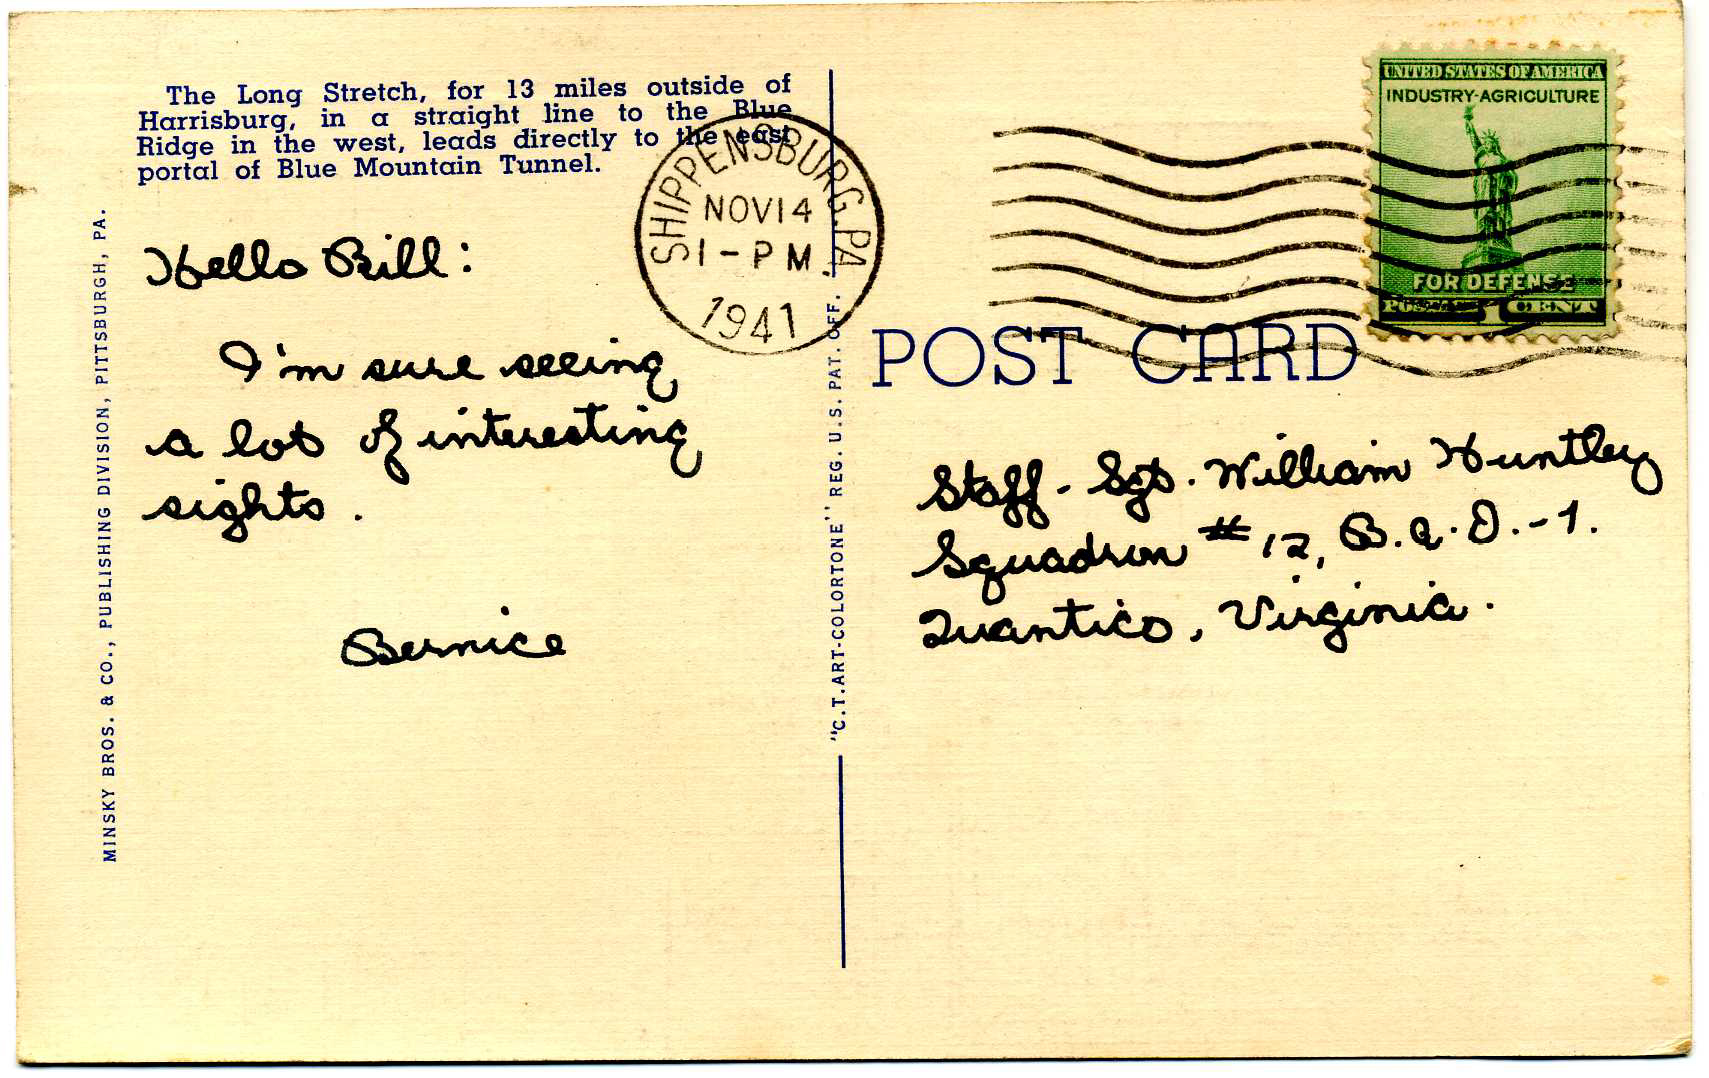 The Long Stretch, for 13 miles outside of
Harrisburg, in a straight line to the Blue
Ridge in the west, leads directly to the east
portal of Blue Mountain Tunnel.
Hello Bill:
I'm sure seeing
a lot of interesting
sights.
Bernice
MINSKY BROS. & CO., PUBLISHING DIVISION, PITTSBURGH, PA.
"C.T. ART-COLORTONE" REG. U.S. PAT. OFF.
SHIPPENSBURG, PA.
NOV 14
1-PM
1941
UNITED STATES OF AMERICA
INDUSTRY-AGRICULTURE
FOR DEFENSE
POSTAGE 1 CENT
POST CARD
Staff-Sgt. William Huntley
Squadron #12, B.A.D.-1.
Quantico, Virginia.